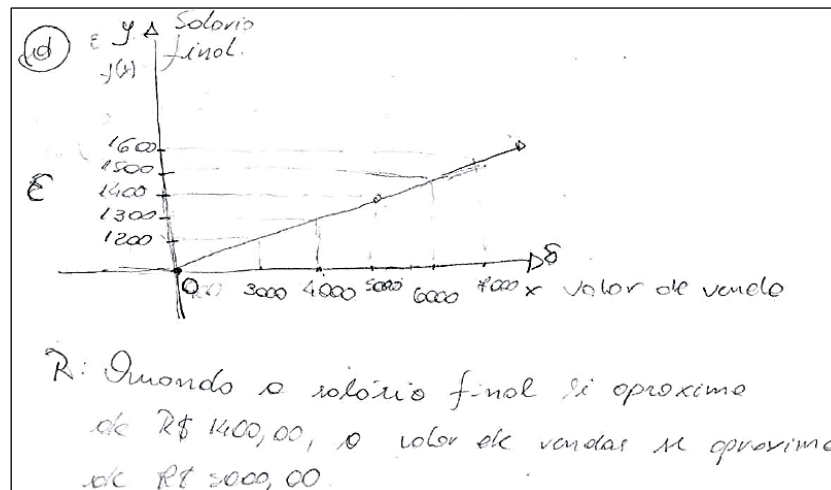 d
ε y Solario
f(x) final.
1600
1500
ε 1400
1300
1200
O 3000 4000 5000 6000 7000 x valor de venda
δ
R: Quando o salório final si aproxima
de R$ 1400,00, o valor de vendas se aproxima
de R$ 5000,00